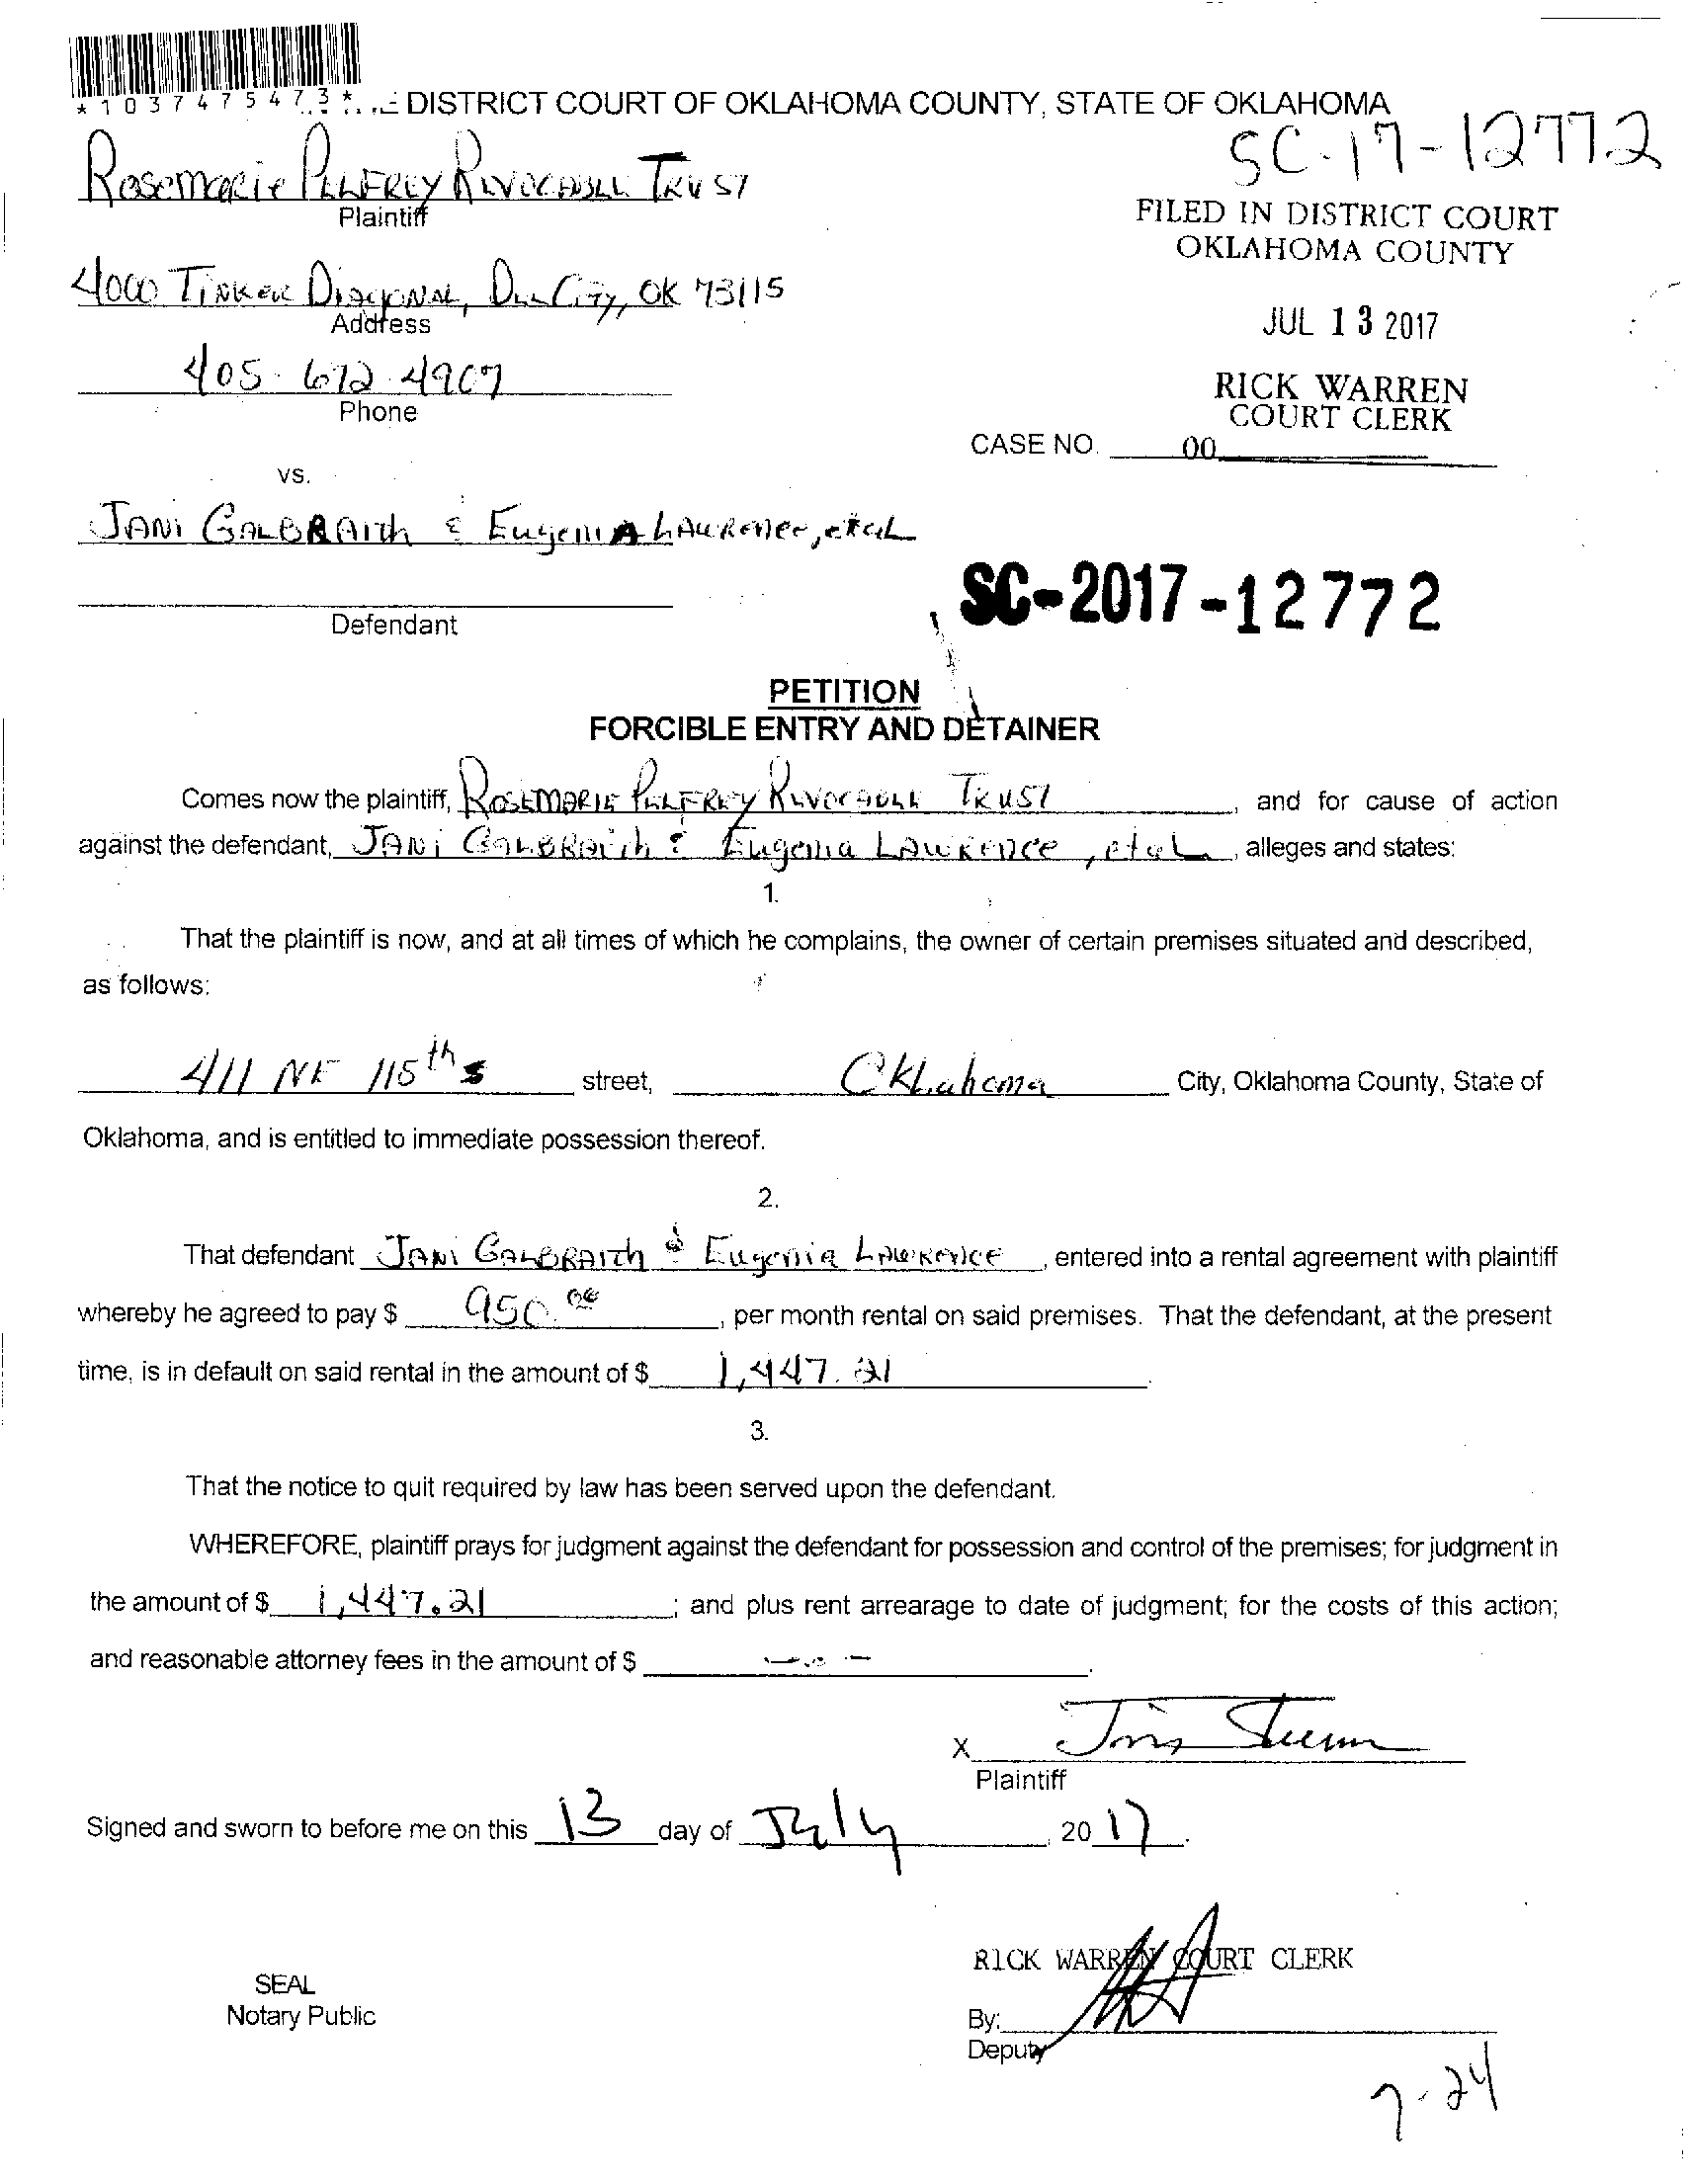 *1037475473* DISTRICT COURT OF OKLAHOMA COUNTY, STATE OF OKLAHOMA
SC-17-12772
Rosemarie Pelfrey Revocable Trust
Plaintiff
FILED IN DISTRICT COURT
OKLAHOMA COUNTY
4000 Tinker Diagonal, Del City, OK 73115
Address
JUL 13 2017
405-672-4907
Phone
RICK WARREN
COURT CLERK
CASE NO. 00
vs.
Jani Galbraith & Eugenia Lawrence, etal
SC-2017-12772
Defendant
PETITION
FORCIBLE ENTRY AND DETAINER
Comes now the plaintiff, Rosemarie Pelfrey Revocable Trust, and for cause of action
against the defendant, Jani Galbraith & Eugenia Lawrence, etal, alleges and states:
1.
That the plaintiff is now, and at all times of which he complains, the owner of certain premises situated and described,
as follows:
411 NE 115th s street, Oklahoma City, Oklahoma County, State of
Oklahoma, and is entitled to immediate possession thereof.
2.
That defendant Jani Galbraith & Eugenia Lawrence, entered into a rental agreement with plaintiff
whereby he agreed to pay $ 950.00, per month rental on said premises. That the defendant, at the present
time, is in default on said rental in the amount of $ 1,447.21.
3.
That the notice to quit required by law has been served upon the defendant.
WHEREFORE, plaintiff prays for judgment against the defendant for possession and control of the premises; for judgment in
the amount of $ 1,447.21; and plus rent arrearage to date of judgment; for the costs of this action;
and reasonable attorney fees in the amount of $ .
X
Plaintiff
Signed and sworn to before me on this 13 day of July, 2017.
RICK WARREN COURT CLERK
SEAL
Notary Public
By:
Deputy
7-24